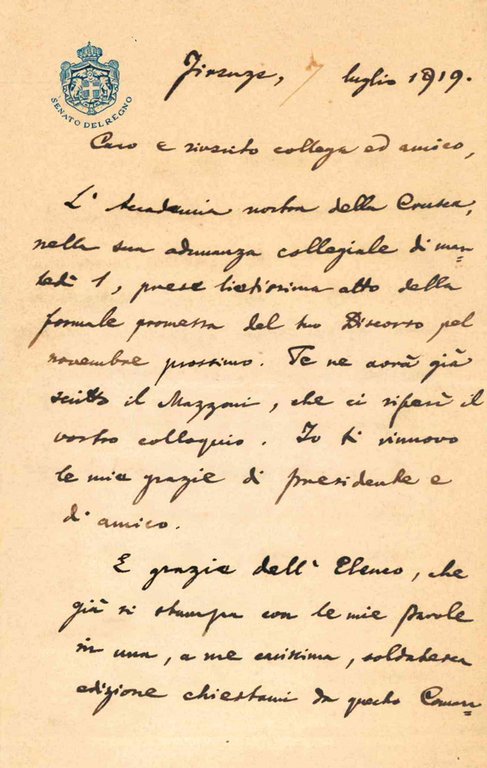 SENATO DEL REGNO
Firenze, 7 luglio 1919.
Caro e riverito collega ed amico,
L' Accademia nostra della Crusca,
nella sua adunanza collegiale di mar=
tedì 1, prese lietissima atto della
formale promessa del tuo Discorso pel
novembre prossimo. Te ne avrà già
scritto il Mazzoni, che ci riferì il
vostro colloquio. Io ti rinnovo
le mie grazie di presidente e
d'amico.
E grazie dell' Elenco, che
già si stampa con le mie parole
in una, a me carissima, soldatesca
edizione chiestami da questo Coman=